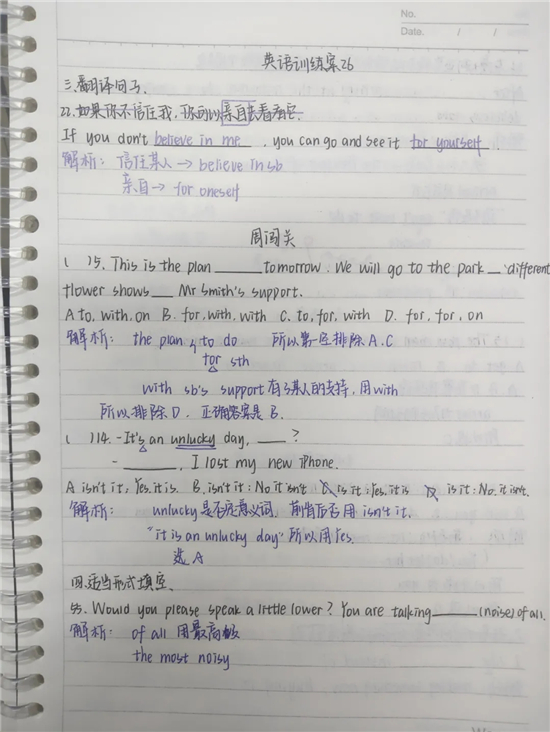 No.
Date. / /
英语训练案26
三.翻译句子.
22.如果你不信任我,你可以亲自去看看它.
If you don't believe in me , you can go and see it for yourself
解析: 信任某人 → believe in sb
亲自 → for oneself
周闯关
( )5. This is the plan _____ tomorrow. We will go to the park _ different
flower shows _ Mr Smith's support.
A to, with, on B. for, with, with C. to, for, with D. for, for, on
解析: the plan to do 所以第一空排除A.C
for sth
with sb's support 有了某人的支持,用with
所以排除D. 正确答案是B.
( )14. -It's an unlucky day, ___?
- _____, I lost my new iPhone.
A isn't it; Yes, it is. B. isn't it; No it isn't C is it; Yes, it is D is it; No, it isn't.
解析: unlucky是否定意义词. 前肯后否用isn't it.
"it is an unlucky day" 所以用Yes.
选A
四.适当形式填空.
55. Would you please speak a little lower? You are talking _____ (noise) of all.
解析: of all 用最高级
the most noisy